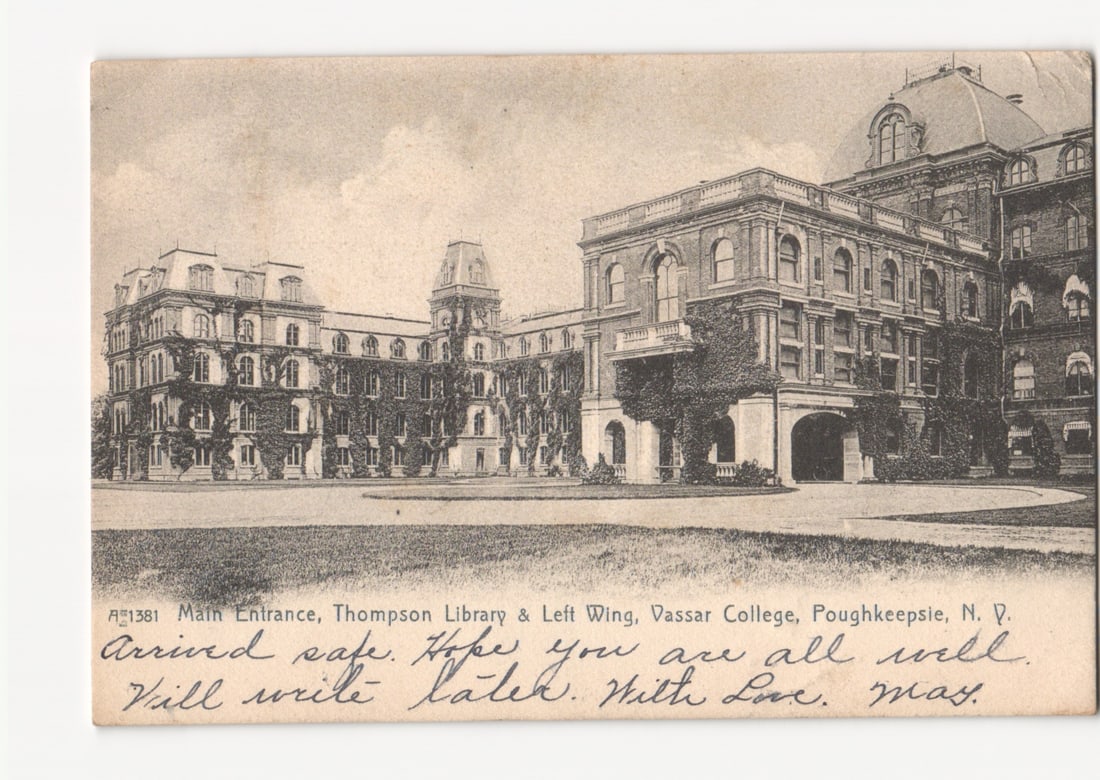 A 1381 Main Entrance, Thompson Library & Left Wing, Vassar College, Poughkeepsie, N. Y.
Arrived safe. Hope you are all well.
Will write later. With Love. May.